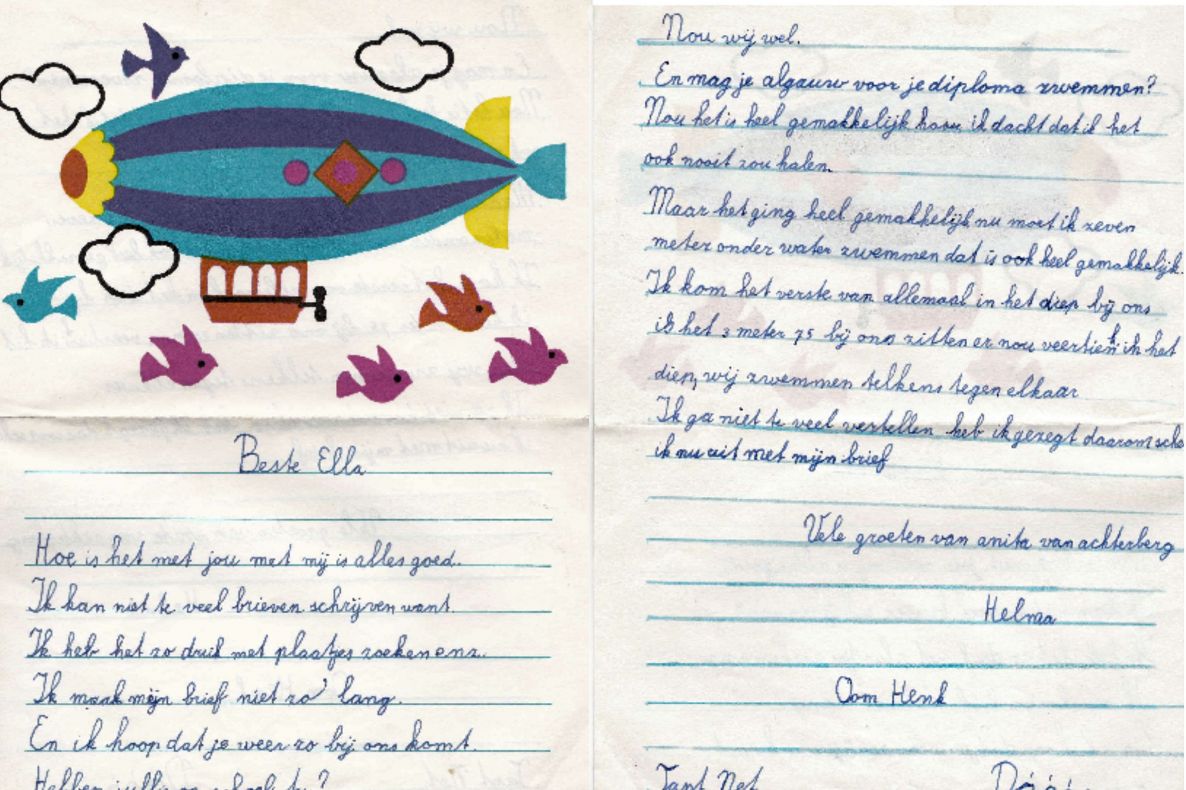 Beste Ella
Hoe is het met jou met mij is alles goed.
Ik kan niet te veel brieven schrijven want.
Ik heb het zo druk met plaatjes zoeken enz.
Ik maak mijn brief niet zo' lang.
En ik hoop dat je weer zo bij ons komt.
Hebben jullie op school tv?
Nou wij wel.
En mag je algauw voor je diploma zwemmen?
Nou het is heel gemakkelijk hoor ik dacht dat ik het
ook nooit zou halen.
Maar het ging heel gemakkelijk nu moet ik zeven
meter onder water zwemmen dat is ook heel gemakkelijk.
Ik kom het verste van allemaal in het diep bij ons
is het 3 meter 75 bij ons zitten er nou veertien in het
diep, wij zwemmen telkens tegen elkaar
Ik ga niet te veel vertellen heb ik gezegt daarom
ik nu uit met mijn brief
Vele groeten van anita van achterberg
Helma
Oom Henk
Tant Net